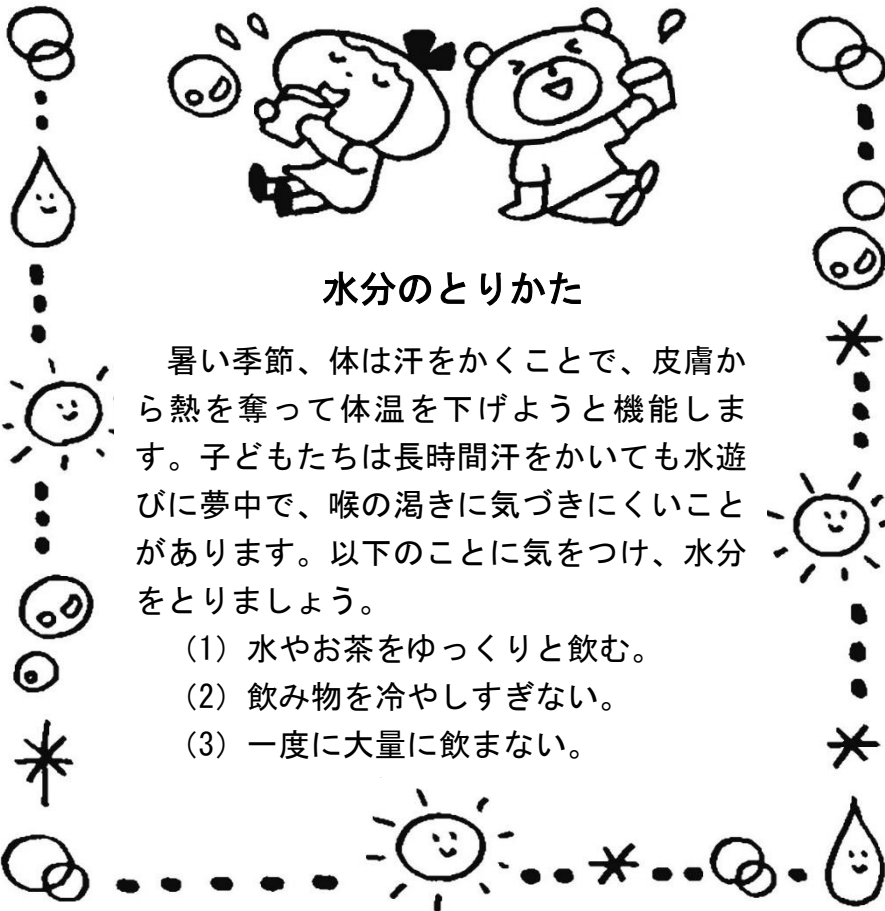 水分のとりかた
暑い季節、体は汗をかくことで、皮膚か
ら熱を奪って体温を下げようと機能しま
す。子どもたちは長時間汗をかいても水遊
びに夢中で、喉の渇きに気づきにくいこと
があります。以下のことに気をつけ、水分
をとりましょう。
(1) 水やお茶をゆっくりと飲む。
(2) 飲み物を冷やしすぎない。
(3) 一度に大量に飲まない。